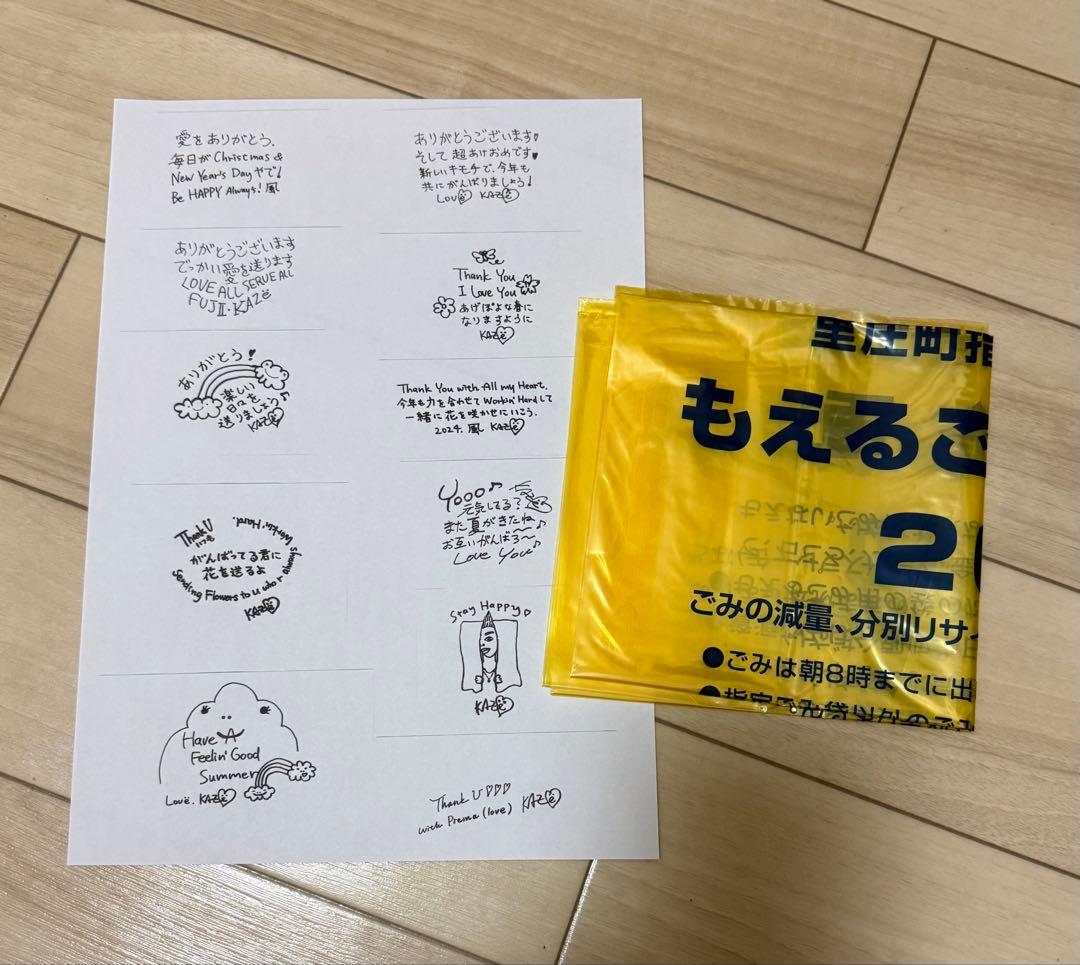 愛をありがとう.
毎日がChristmas &
New Year's Dayやで!
Be HAPPY Always! 風
ありがとうございます♥
そして 超あけおめです♥
新しいキモチで、今年も
共にがんばりましょう!
LOVE KAZE
ありがとうございます
でっかい愛を送ります
LOVE ALL SERVE ALL
FUJII・KAZE
Thank You
I Love You
あげぽよな春に
なりますように
KAZE
ありがとう!
楽しい
日々を
送りましょう♪
KAZE
Thank You with All my Heart.
今年も力を合わせて Workin' Hardして
一緒に花を咲かせにいこう.
2024. 風 KAZE
Yooo♪
元気してる?
また夏がきたね♪
お互いがんばろ〜
Love You♪
Thank U
いつも
がんばってる君に
花を送るよ
Sending Flowers to U who r always
Workin' Hard.
KAZE
Stay Happy♡
KAZE
Have A
Feelin' Good
Summer
Love. KAZE
Thank U♡♡♡
with Prema (love) KAZE
里庄町指
もえるご
2
ごみの減量、分別リサイ
●ごみは朝8時までに出
●指定ごみ袋以外のごみ